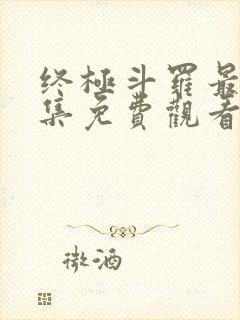 終極斗羅最
集免費觀看
微酒